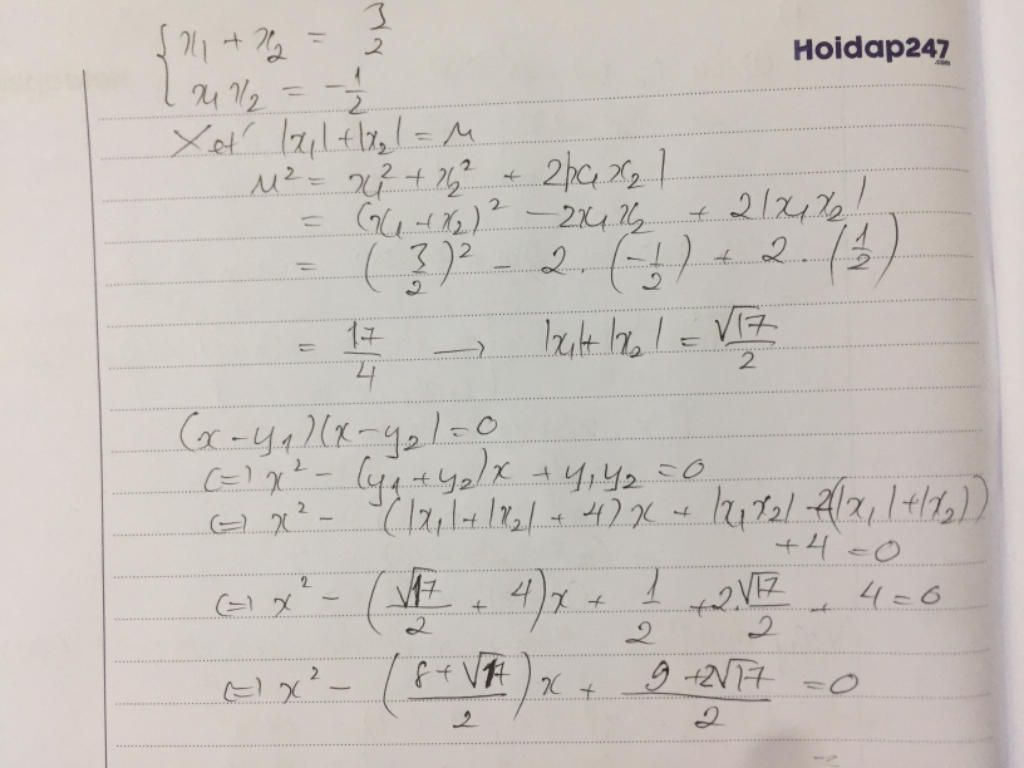 Hoidap247
.com
{ x₁ + x₂ = 3/2
x₁x₂ = -1/2
Xét |x₁|+|x₂| = M
M² = x₁² + x₂² + 2|x₁x₂|
= (x₁+x₂)² - 2x₁x₂ + 2|x₁x₂|
= (3/2)² - 2.(-1/2) + 2.(1/2)
= 17/4 → |x₁|+|x₂| = √17/2
(x-y₁)(x-y₂)=0
(=) x² - (y₁+y₂)x + y₁y₂ = 0
(=) x² - (|x₁|+|x₂|+4)x + |x₁x₂| + 2(|x₁|+|x₂|)
+4 = 0
(=) x² - (√17/2 + 4)x + 1/2 + 2.√17/2 + 4 = 0
(=) x² - (8+√17/2)x + 9+2√17/2 = 0